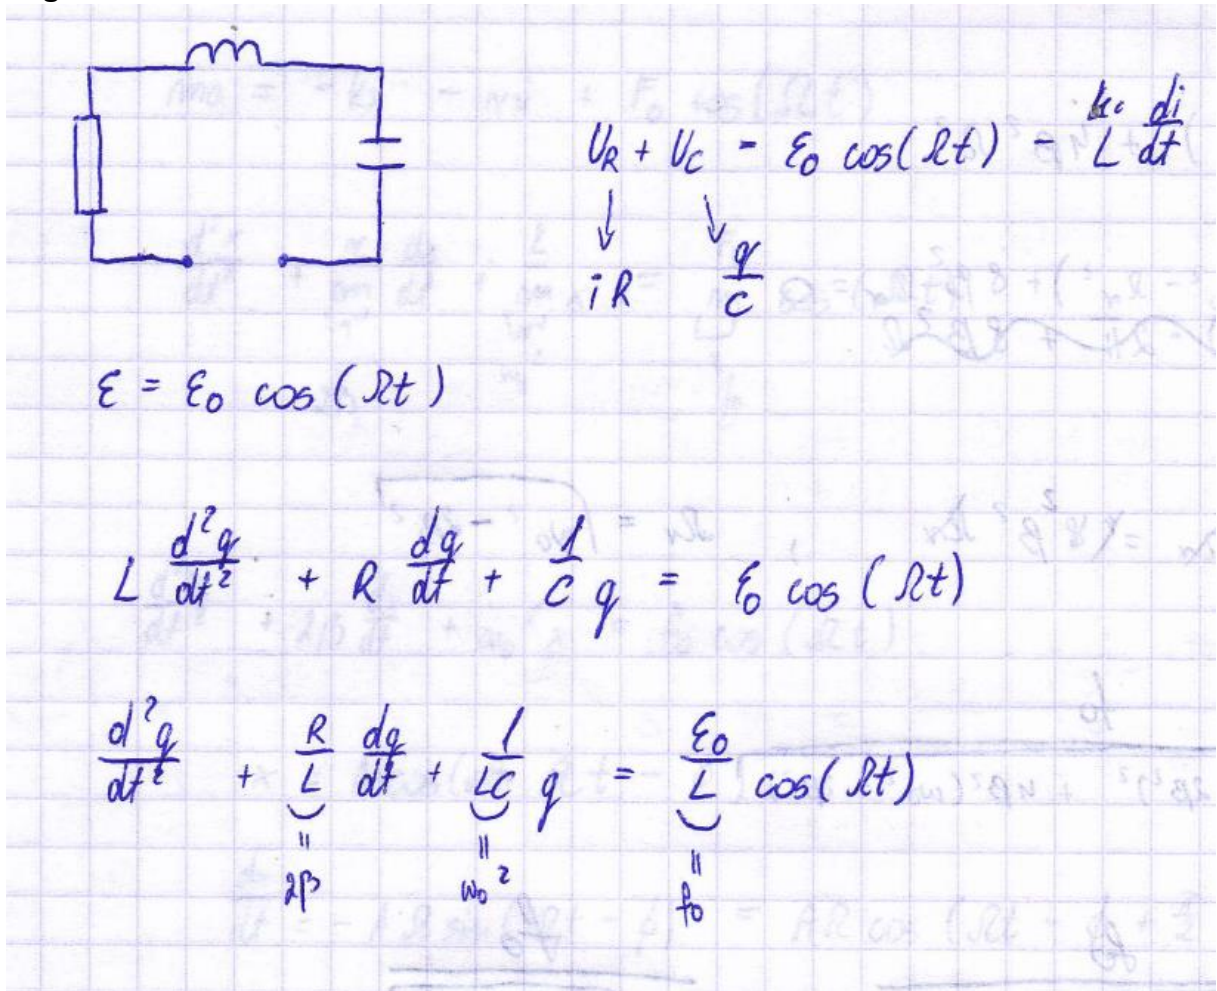 U_R + U_C = ε₀ cos(Ωt) − L di/dt
↓ ↓
iR q/C
ε = ε₀ cos(Ωt)
L d²q/dt² + R dq/dt + 1/C q = ε₀ cos(Ωt)
d²q/dt² + R/L dq/dt + 1/LC q = ε₀/L cos(Ωt)
= = =
2β ω₀² f₀